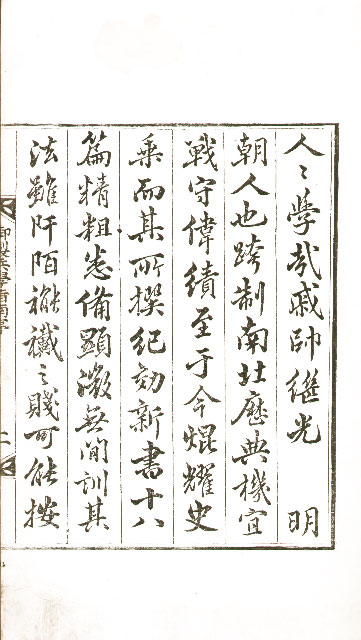 人〻學哉戚帥繼光　明
朝人也跨制南北歷典機宜
戰守偉績至于今焜耀史
乘而其所撰紀效新書十八
篇精粗悉備顯微無間訓其
法雖阡陌襏襫之賤可能按
御製兵學指南序
二